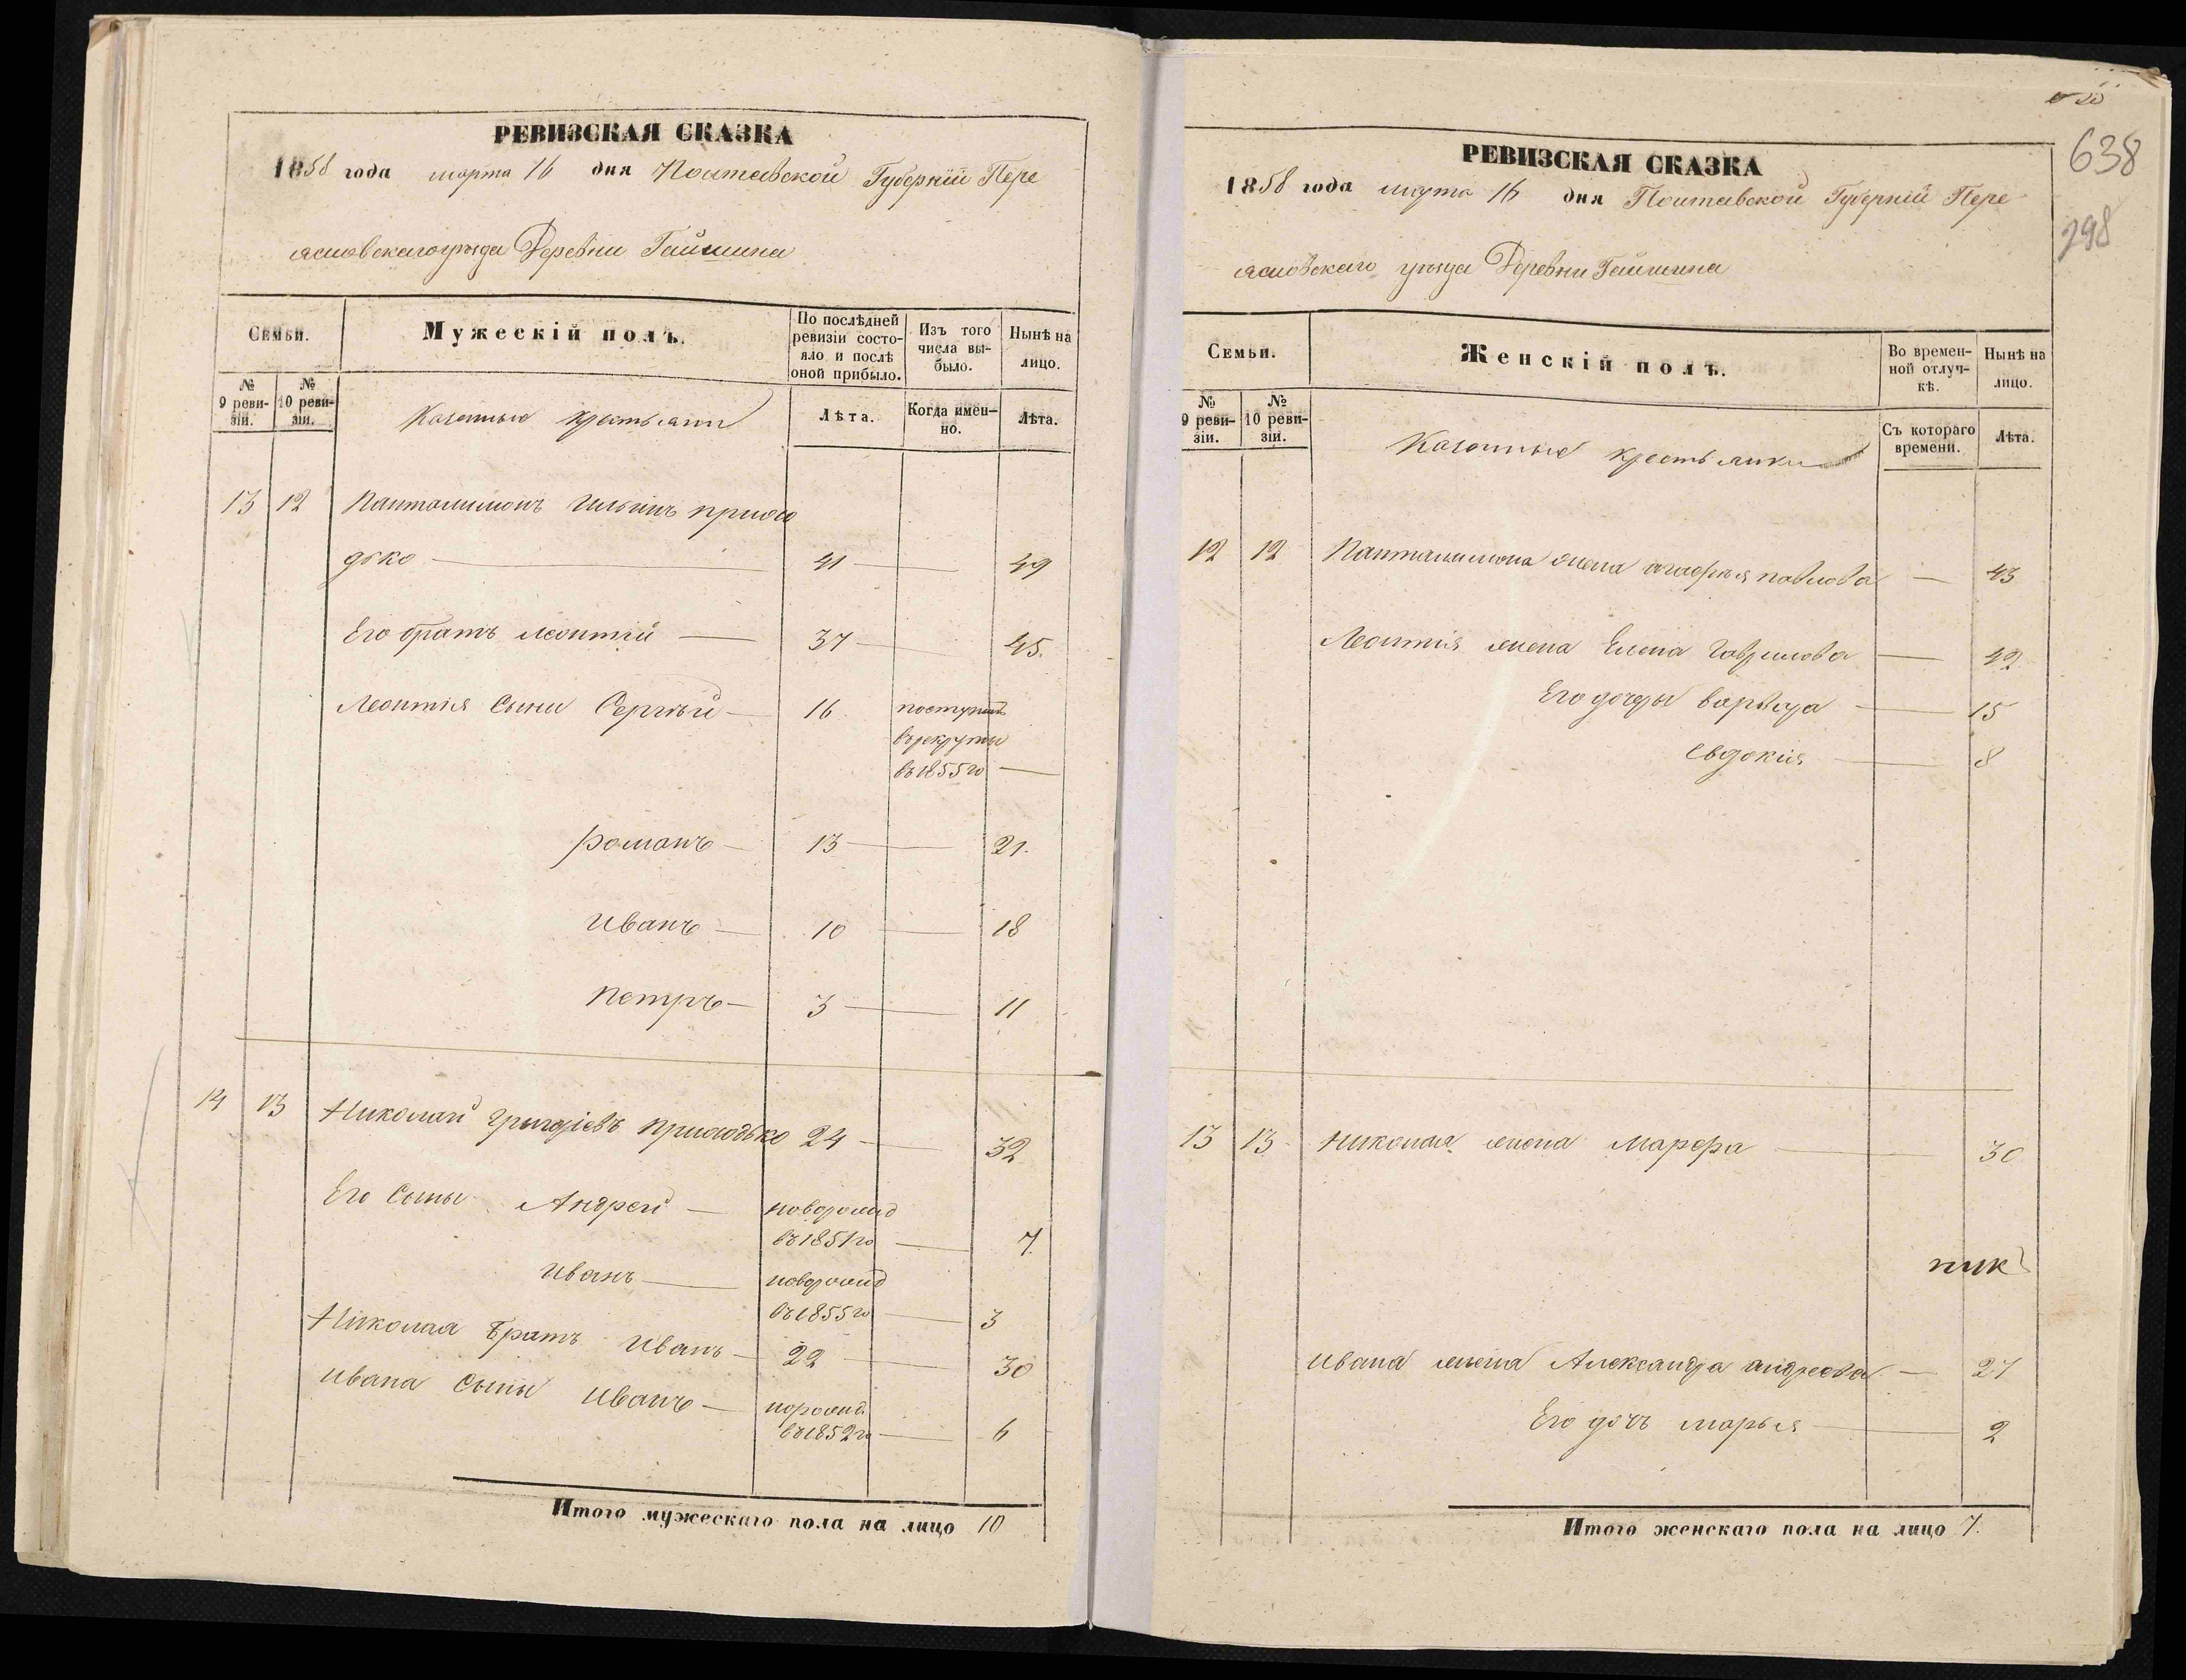 РЕВИЗСКАЯ СКАЗКА
1858 года марта 16 дня Полтавской Губерніи Пере
яславскаго уѣзда Деревни Гайшина
Семьи.
Мужескій полъ.
По послѣдней ревизіи состояло и послѣ оной прибыло.
Изъ того числа выбыло.
Нынѣ на лицо.
№ 9 ревизіи.
№ 10 ревизіи.
Казенные крестьяни
Лѣта.
Когда именно.
Лѣта.
13 12 Панталимонъ Ильинъ прихо
дько — 41 — 49
Его братъ Леонтій — 37 — 45.
Леонтія Сыны Сергѣй — 16 поступилъ
въ рекруты
въ 1855 го —
Романъ — 13 — 21.
Иванъ — 10 — 18
Петръ — 3 — 11
14 13 Николай Григоріевъ Приходько 24 — 32
Его Сыны Андрей — новорожд
въ 1851 го — 7.
Иванъ — новорожд
въ 1855 го — 3
Николая Братъ Иванъ — 22 — 30
Ивана Сыны Иванъ — норожд.
въ 1852 го — 6
Итого мужескаго пола на лицо 10
638
298
РЕВИЗСКАЯ СКАЗКА
1858 года марта 16 дня Полтавской Губерніи Пере
яславскаго уѣзда Деревни Гайшина
Семьи.
Женскій полъ.
Во временной отлучкѣ.
Нынѣ на лицо.
№ 9 ревизіи.
№ 10 ревизіи.
Казенные крестьянки
Съ котораго времени.
Лѣта.
12 12 Панталимона жена павлова — 43
Леонтія жена Елена Гаврилова — 42
Его дочеры — 15
Евдокія — 8
13 13 Николая жена Марфа — 30
Ивана жена Александра андреева — 27
Его дочъ марья — 2
Итого женскаго пола на лицо 7.